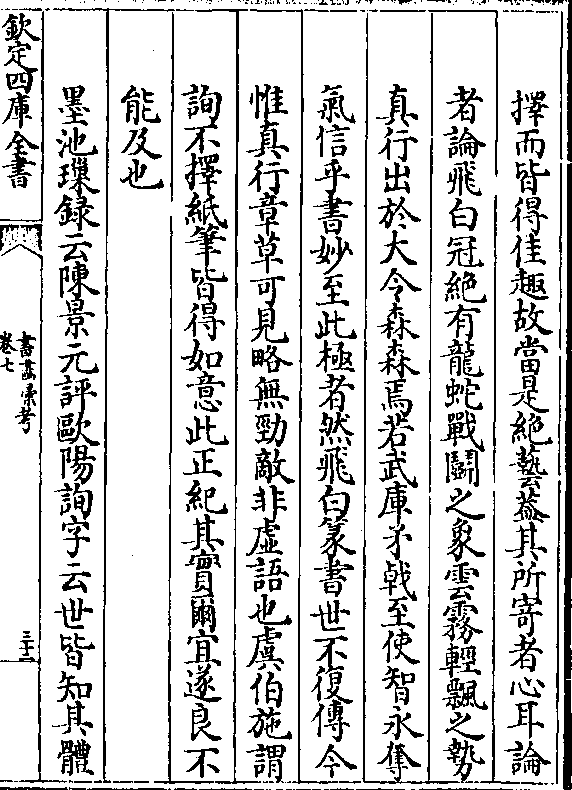 擇而皆得佳趣故當是絶藝葢其所寄者心耳論
者論飛白冠絶有龍蛇戰鬭之象雲霧輕飄之勢
真行出於大令森森焉若武庫矛㦸至使智永奪
氣信乎書妙至此極者然飛白篆書世不復傳今
惟真行章草可見略無勁敵非虛語也虞伯施謂
詢不擇紙筆皆得如意此正紀其實爾宜遂良不
能及也
墨池璅録云陳景元評歐陽詢字云世皆知其體
欽定四庫全書
書畫彚考
卷七
三十二